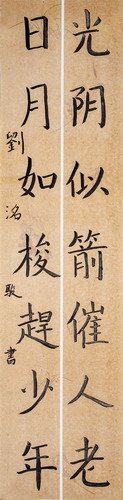 光阴似箭催人老
日月如梭趕少年
劉洺駿書